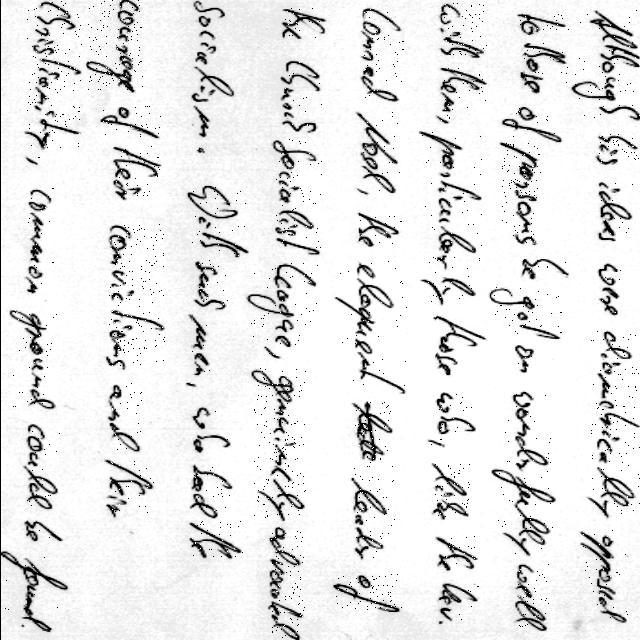 Although his ideas were diametrically opposed
to those of parsons he got on wonderfully well
with them, particularly those who, like the Rev.
Conrad Noel, the eloquent leader of
the Church Socialist League, genuinely advocated
Socialism. With such men, who had the
courage of their convictions and their
Christianity, common ground could be found.